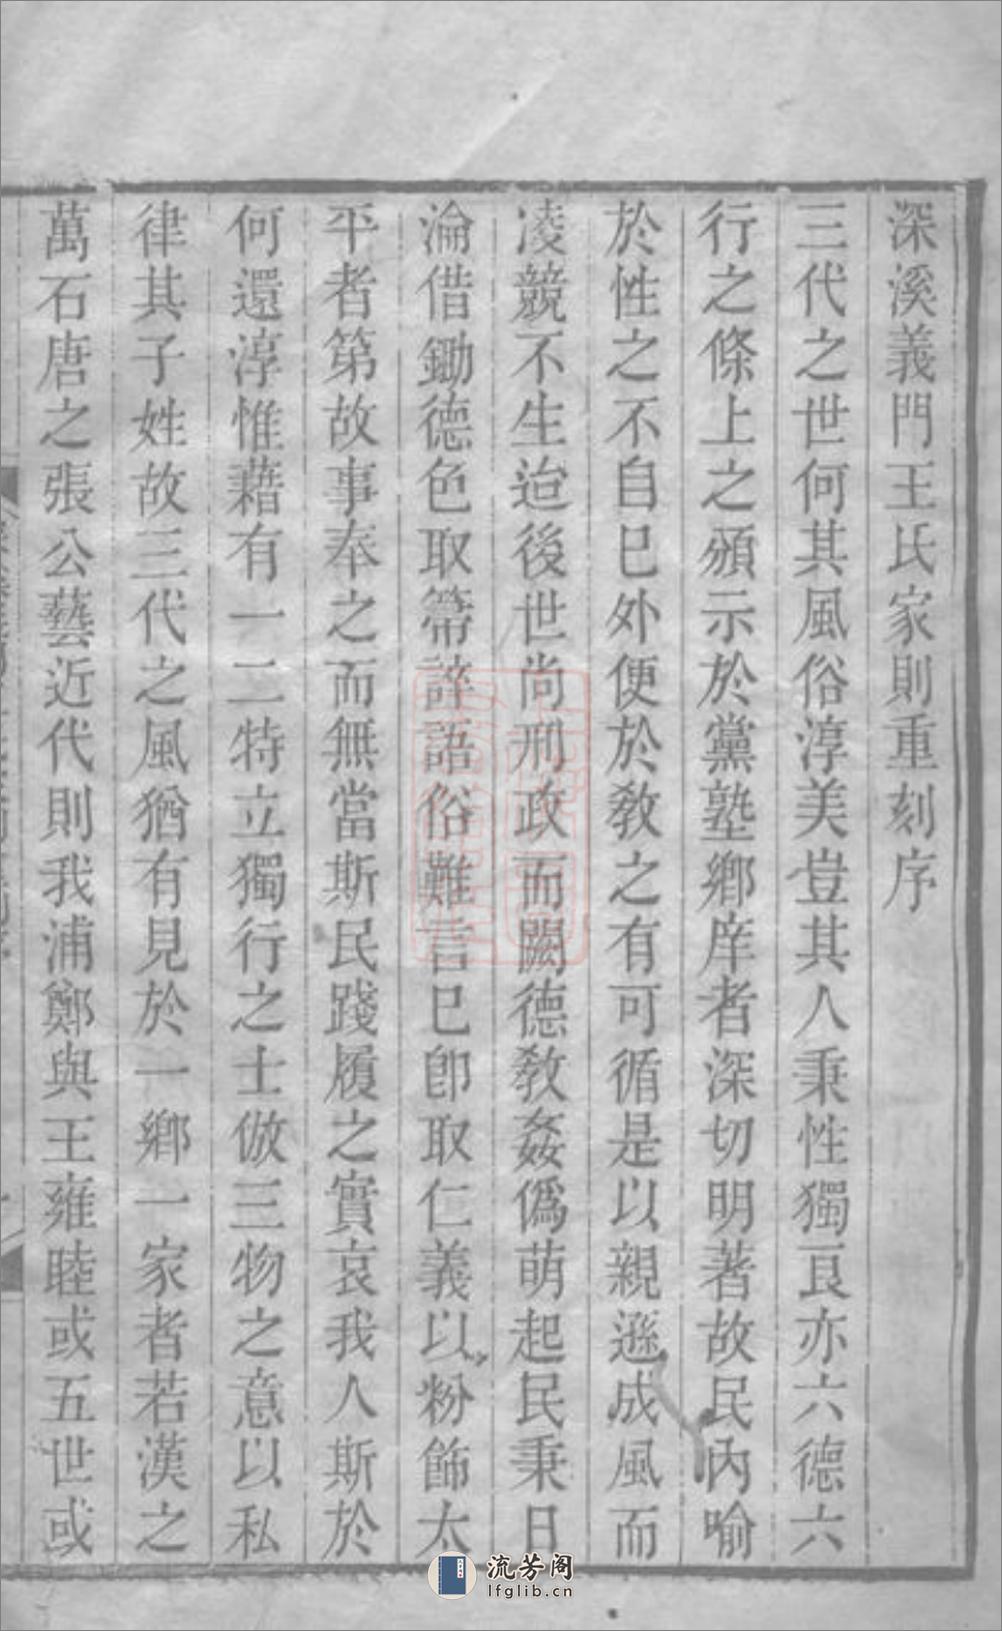 深溪義門王氏家則重刻序
三代之世何其風俗淳美豈其人秉性獨良亦六德六
行之條上之頒示於黨塾鄉庠者深切明著故民內喻
於性之不自已外便於教之有可循是以親遜成風而
凌競不生迨後世尚刑政而闕德教姦僞萌起民秉日
淪借鋤德色取箒誶語俗難言已卽取仁義以粉飾太
平者第故事奉之而無當斯民踐履之實哀我人斯於
何還淳惟藉有一二特立獨行之士倣三物之意以私
律其子姓故三代之風猶有見於一鄉一家者若漢之
萬石唐之張公藝近代則我浦鄭與王雍睦或五世或
流芳阁
lfglib.cn